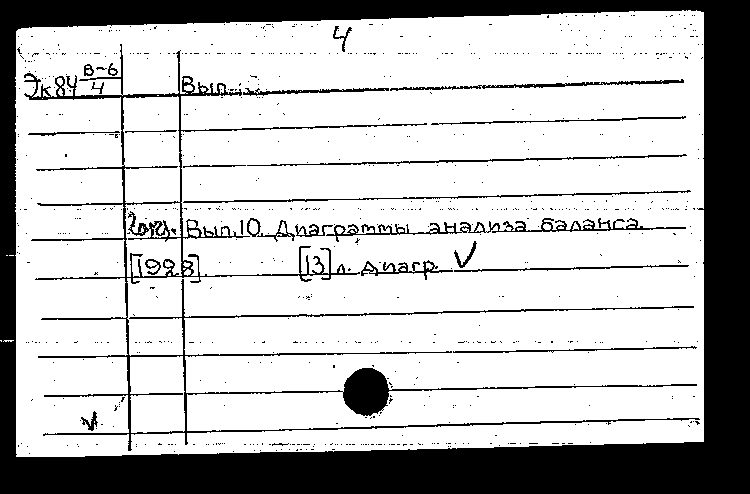 4
Эк84 В-6/4 Вып.
Вып.10. Диаграммы анализа баланса.
[1928] [13] л. диагр.